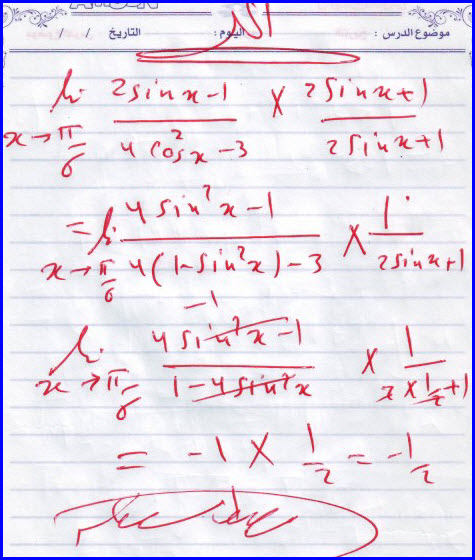 موضوع الدرس : اليوم : التاريخ / /
lim x→π/6 (2sinx-1)/(4cos²x-3) × (2sinx+1)/(2sinx+1)
= lim x→π/6 (4sin²x-1)/(4(1-sin²x)-3) × 1/(2sinx+1)
-1
lim x→π/6 (4sin²x-1)/(1-4sin²x) × 1/(2×1/2+1)
= -1 × 1/2 = -1/2